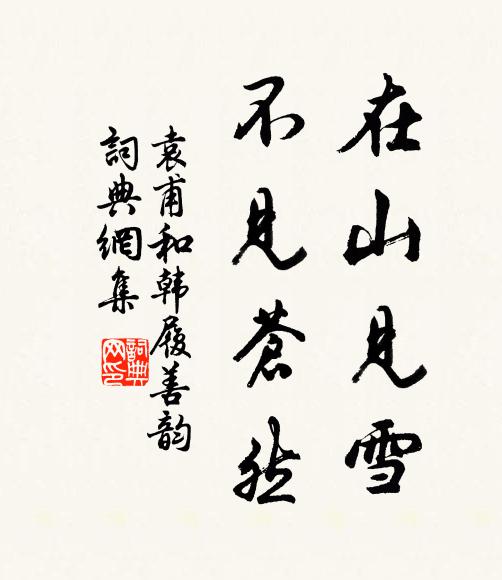 在山見雪
不見蒼然
袁甫和韩履善韵
詞典網集
詞典網印